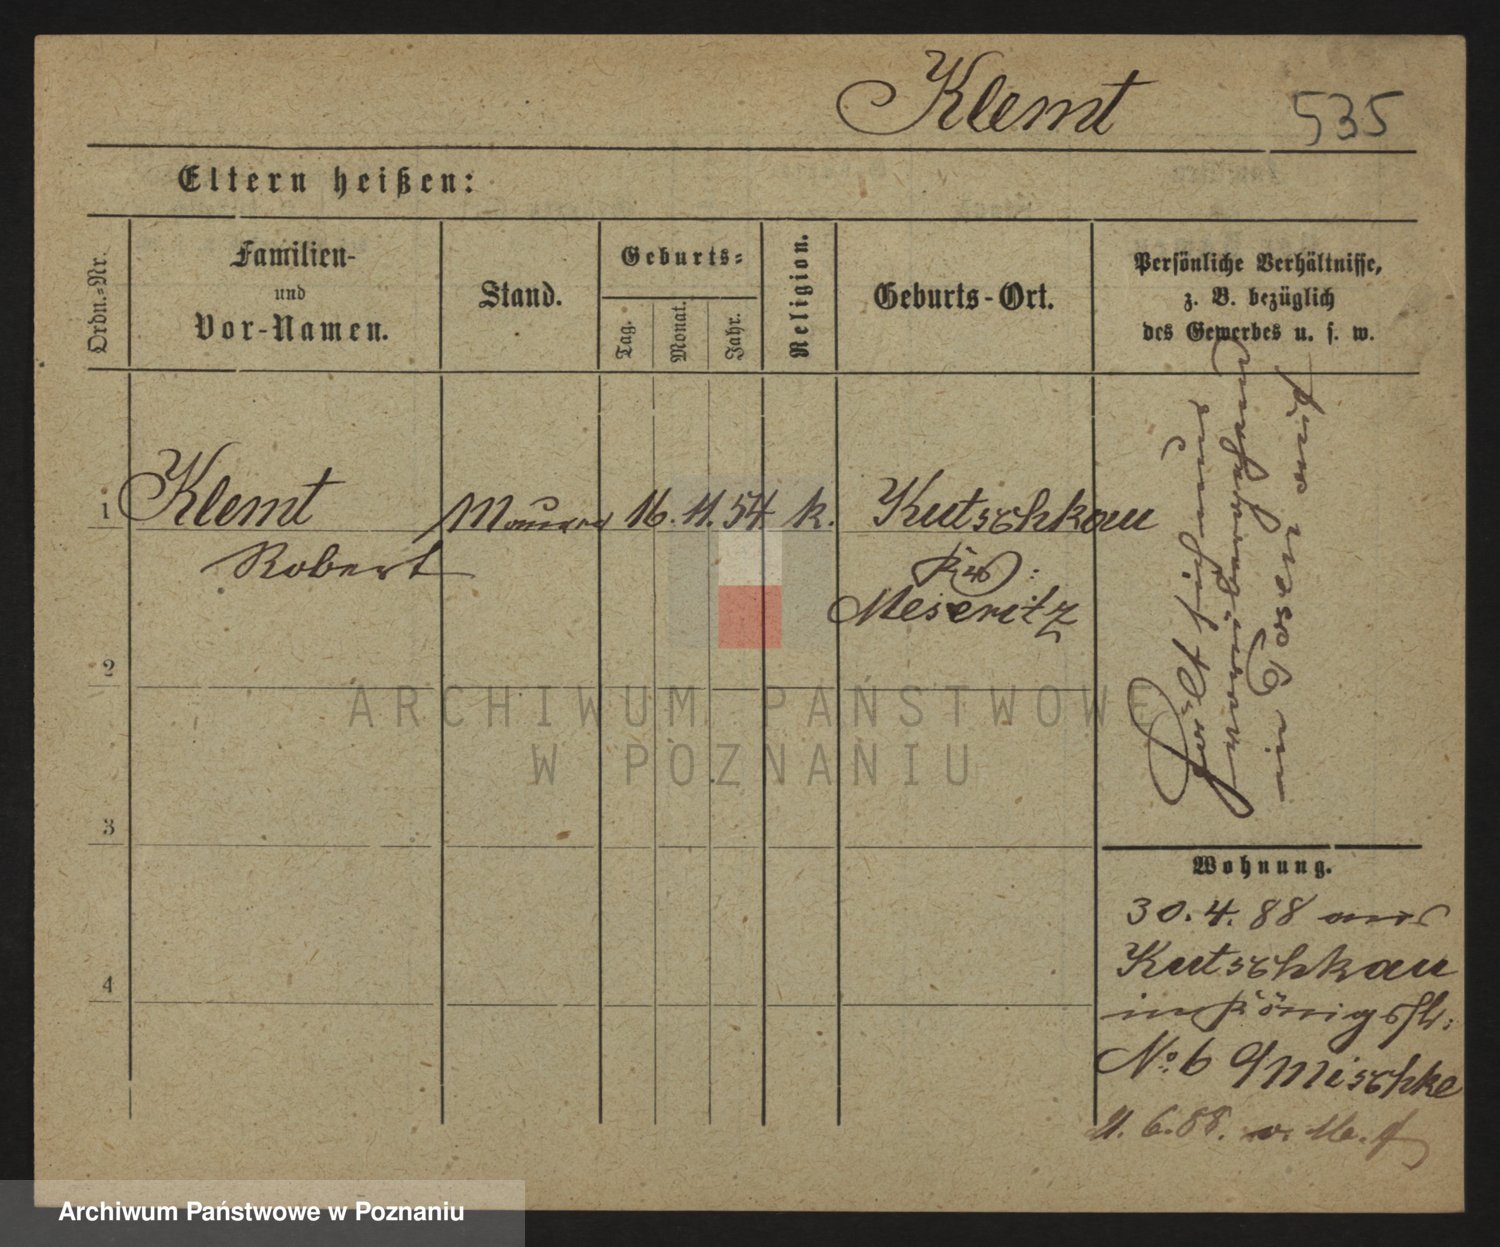 Klemt 535
Eltern heißen:
Ordn.-Nr.
Familien-
und
Vor-Namen.
Stand.
Geburts-
Tag.
Monat.
Jahr.
Religion.
Geburts-Ort.
Persönliche Verhältnisse,
z. B. bezüglich
des Gewerbes u. s. w.
1 Klemt Maurer 16. 11. 54 k. Kutschkau
Robert
Krs:
Meseritz
2
3
4
in Posen
Wohnung.
30. 4. 88 aus
Kutschkau
in Königsstr:
No. 6 Mischke
11. 6. 88.
ARCHIWUM PAŃSTWOWE
W POZNANIU
Archiwum Państwowe w Poznaniu